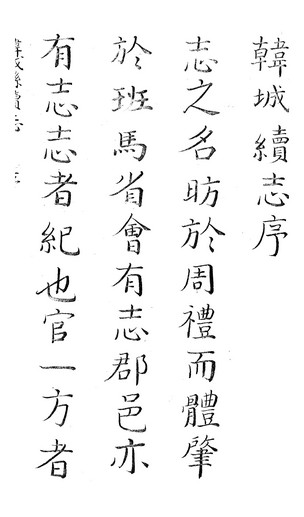 韓城續志序
志之名昉於周禮而體肇
於班馬省會有志郡邑亦
有志志者紀也官一方者
韓城縣續志